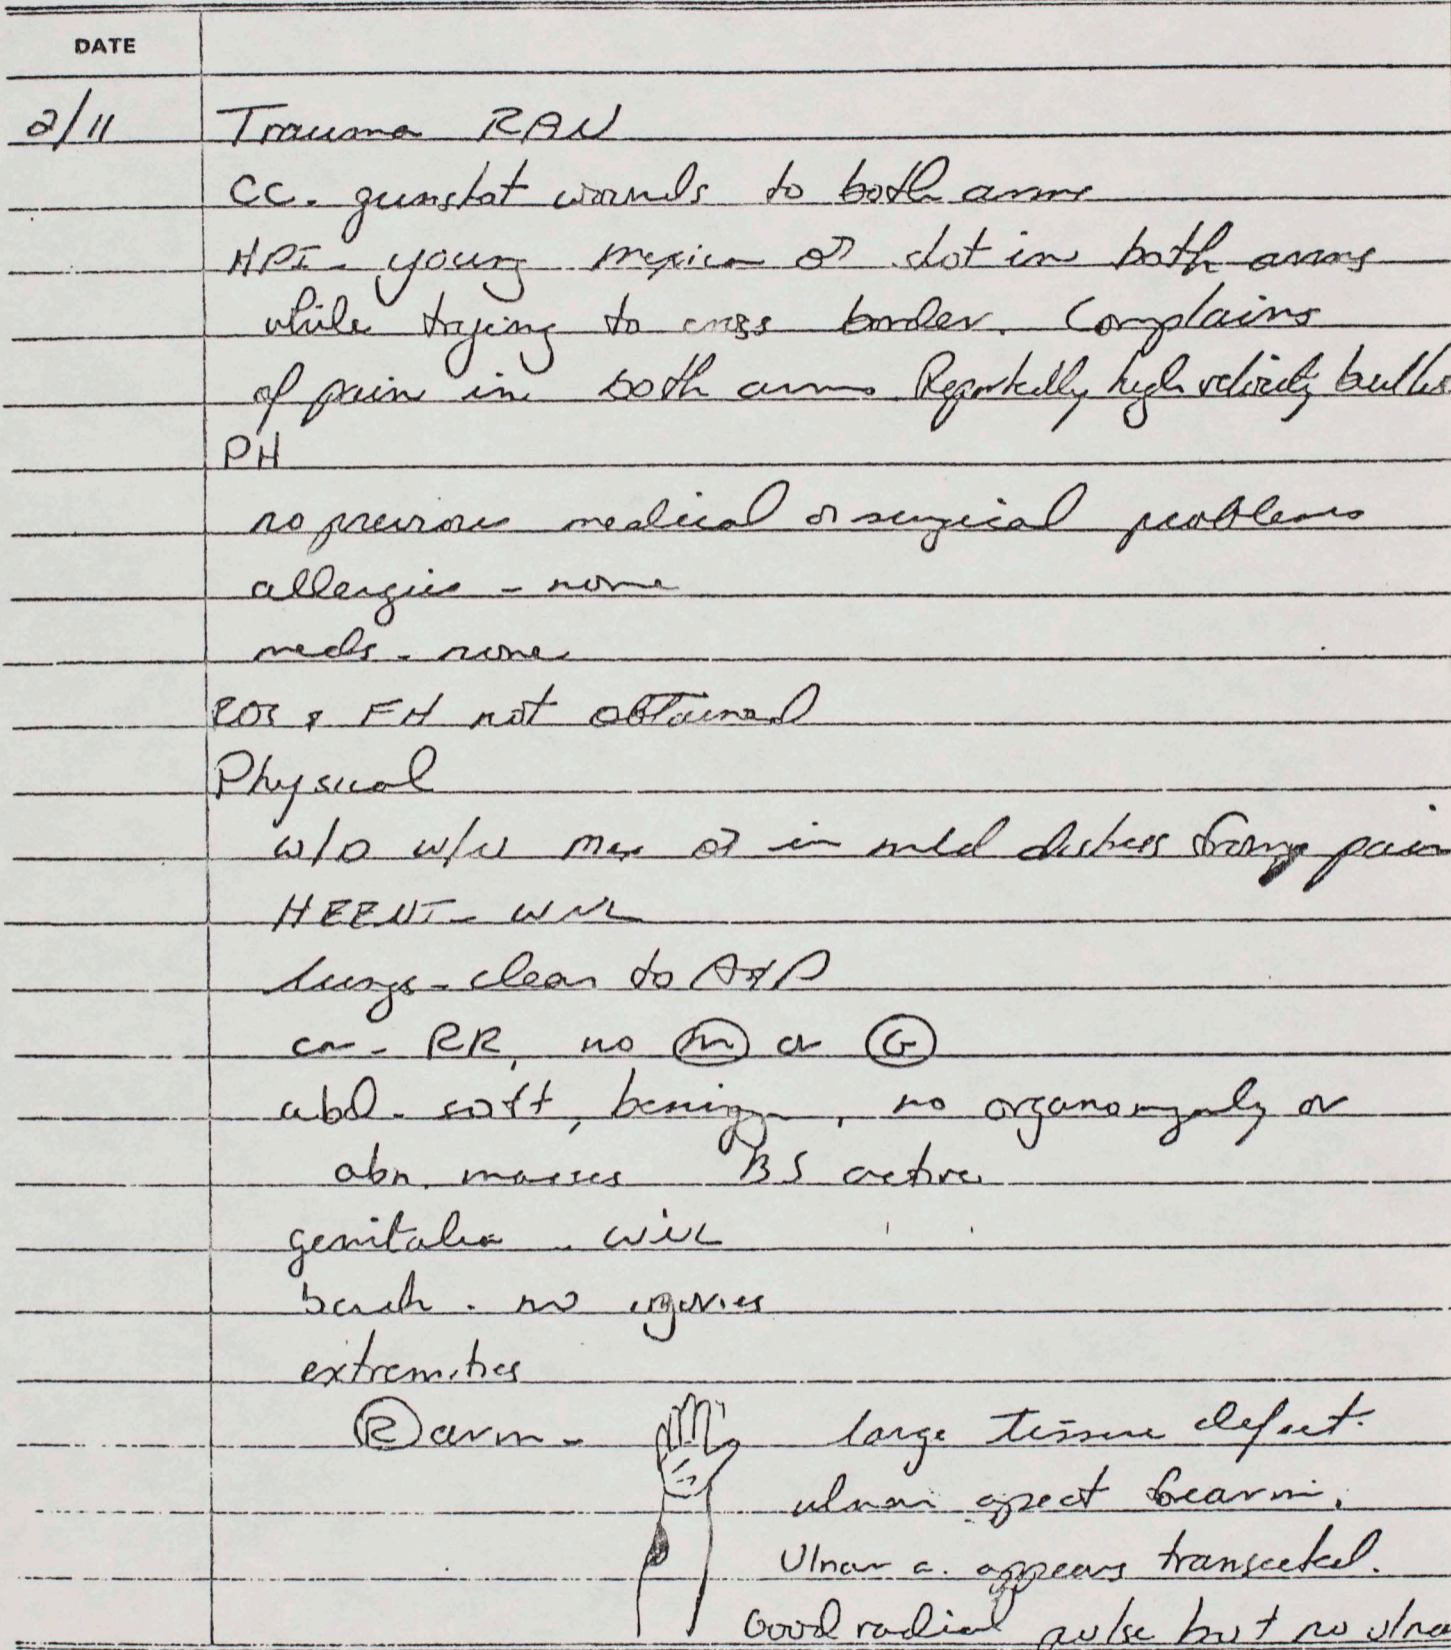 DATE
2/11 Trauma RAN
CC. gunshot wounds to both arms
HPI - young Mexican ♂ shot in both arms
while trying to cross border. Complains
of pain in both arms. Reportedly high velocity bullets
PH
no previous medical or surgical problems
allergies - none
meds - none
ROS & FH not obtained
Physical
w/D w/N Mex ♂ in mild distress from pain
HEENT - WNL
lungs - clear to A&P
cor - RR, no Ⓜ or Ⓖ
abd - soft, benign, no organomegaly or
abn. masses BS active
genitalia - WNL
back - no injuries
extremities
Ⓡ arm - large tissue defect
ulnar aspect forearm.
Ulnar a. appears transected.
Good radial pulse but no ulna